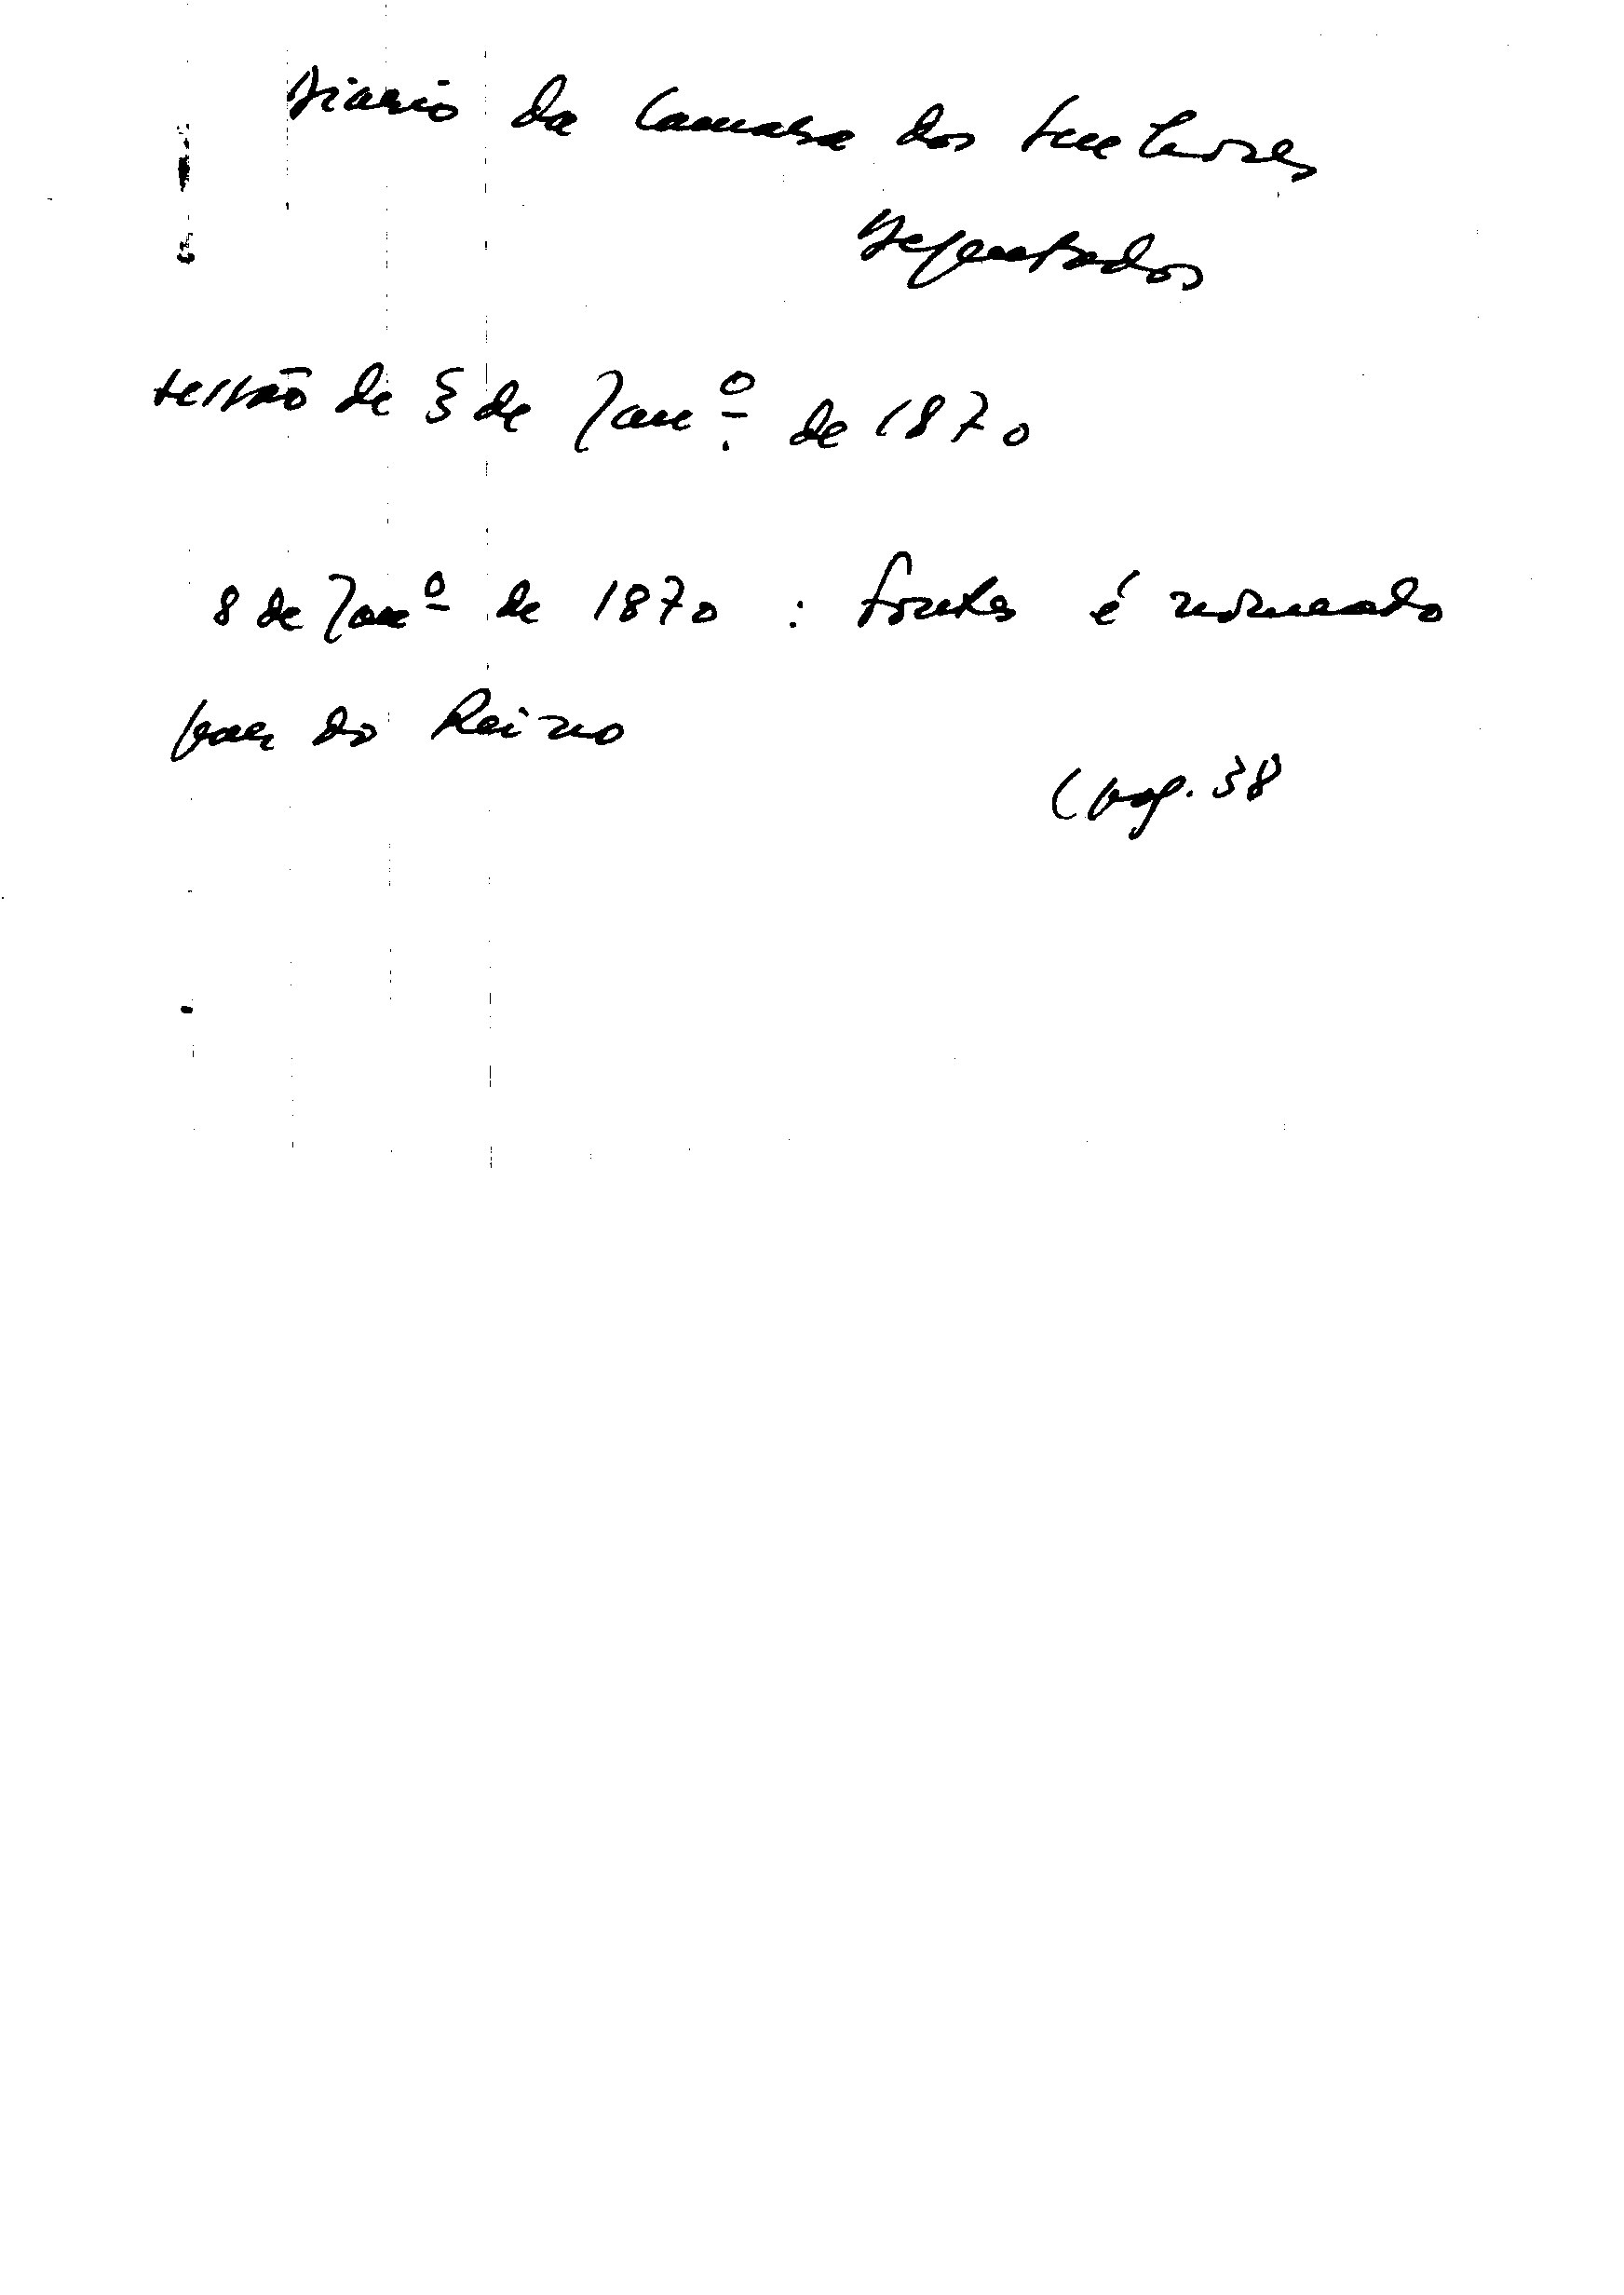 Diario da Camara dos Senhores
Deputados
Sessão de 3 de Janº de 1870
8 de Janº de 1870 : Fontes é nomeado
par do Reino
(pag. 38